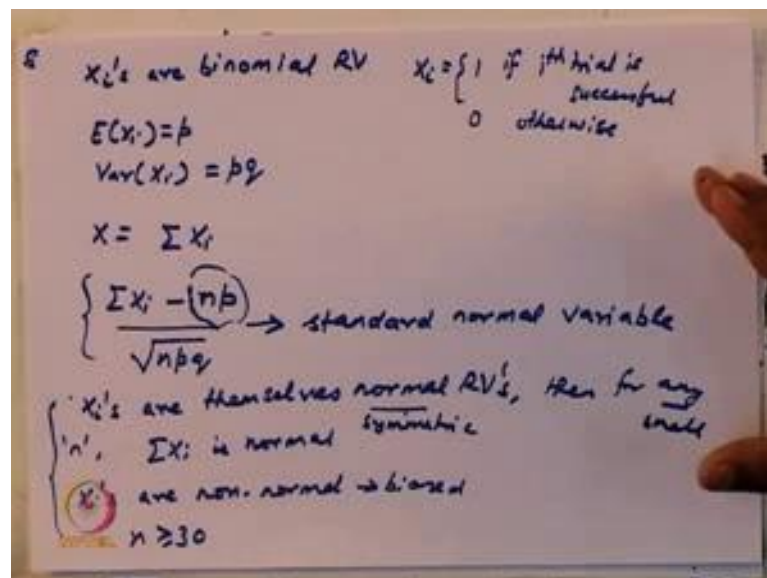 Xi's are binomial RV Xi = { 1 if ith trial is successful
0 otherwise
E(Xi) = p
Var(Xi) = pq
X = Σ Xi
{ Σ Xi - (np) / √npq → standard normal variable
{ Xi's are themselves normal RV's, then for any
symmetric small
'n', Σ Xi is normal
Xi's are non-normal → biased
n ≥ 30